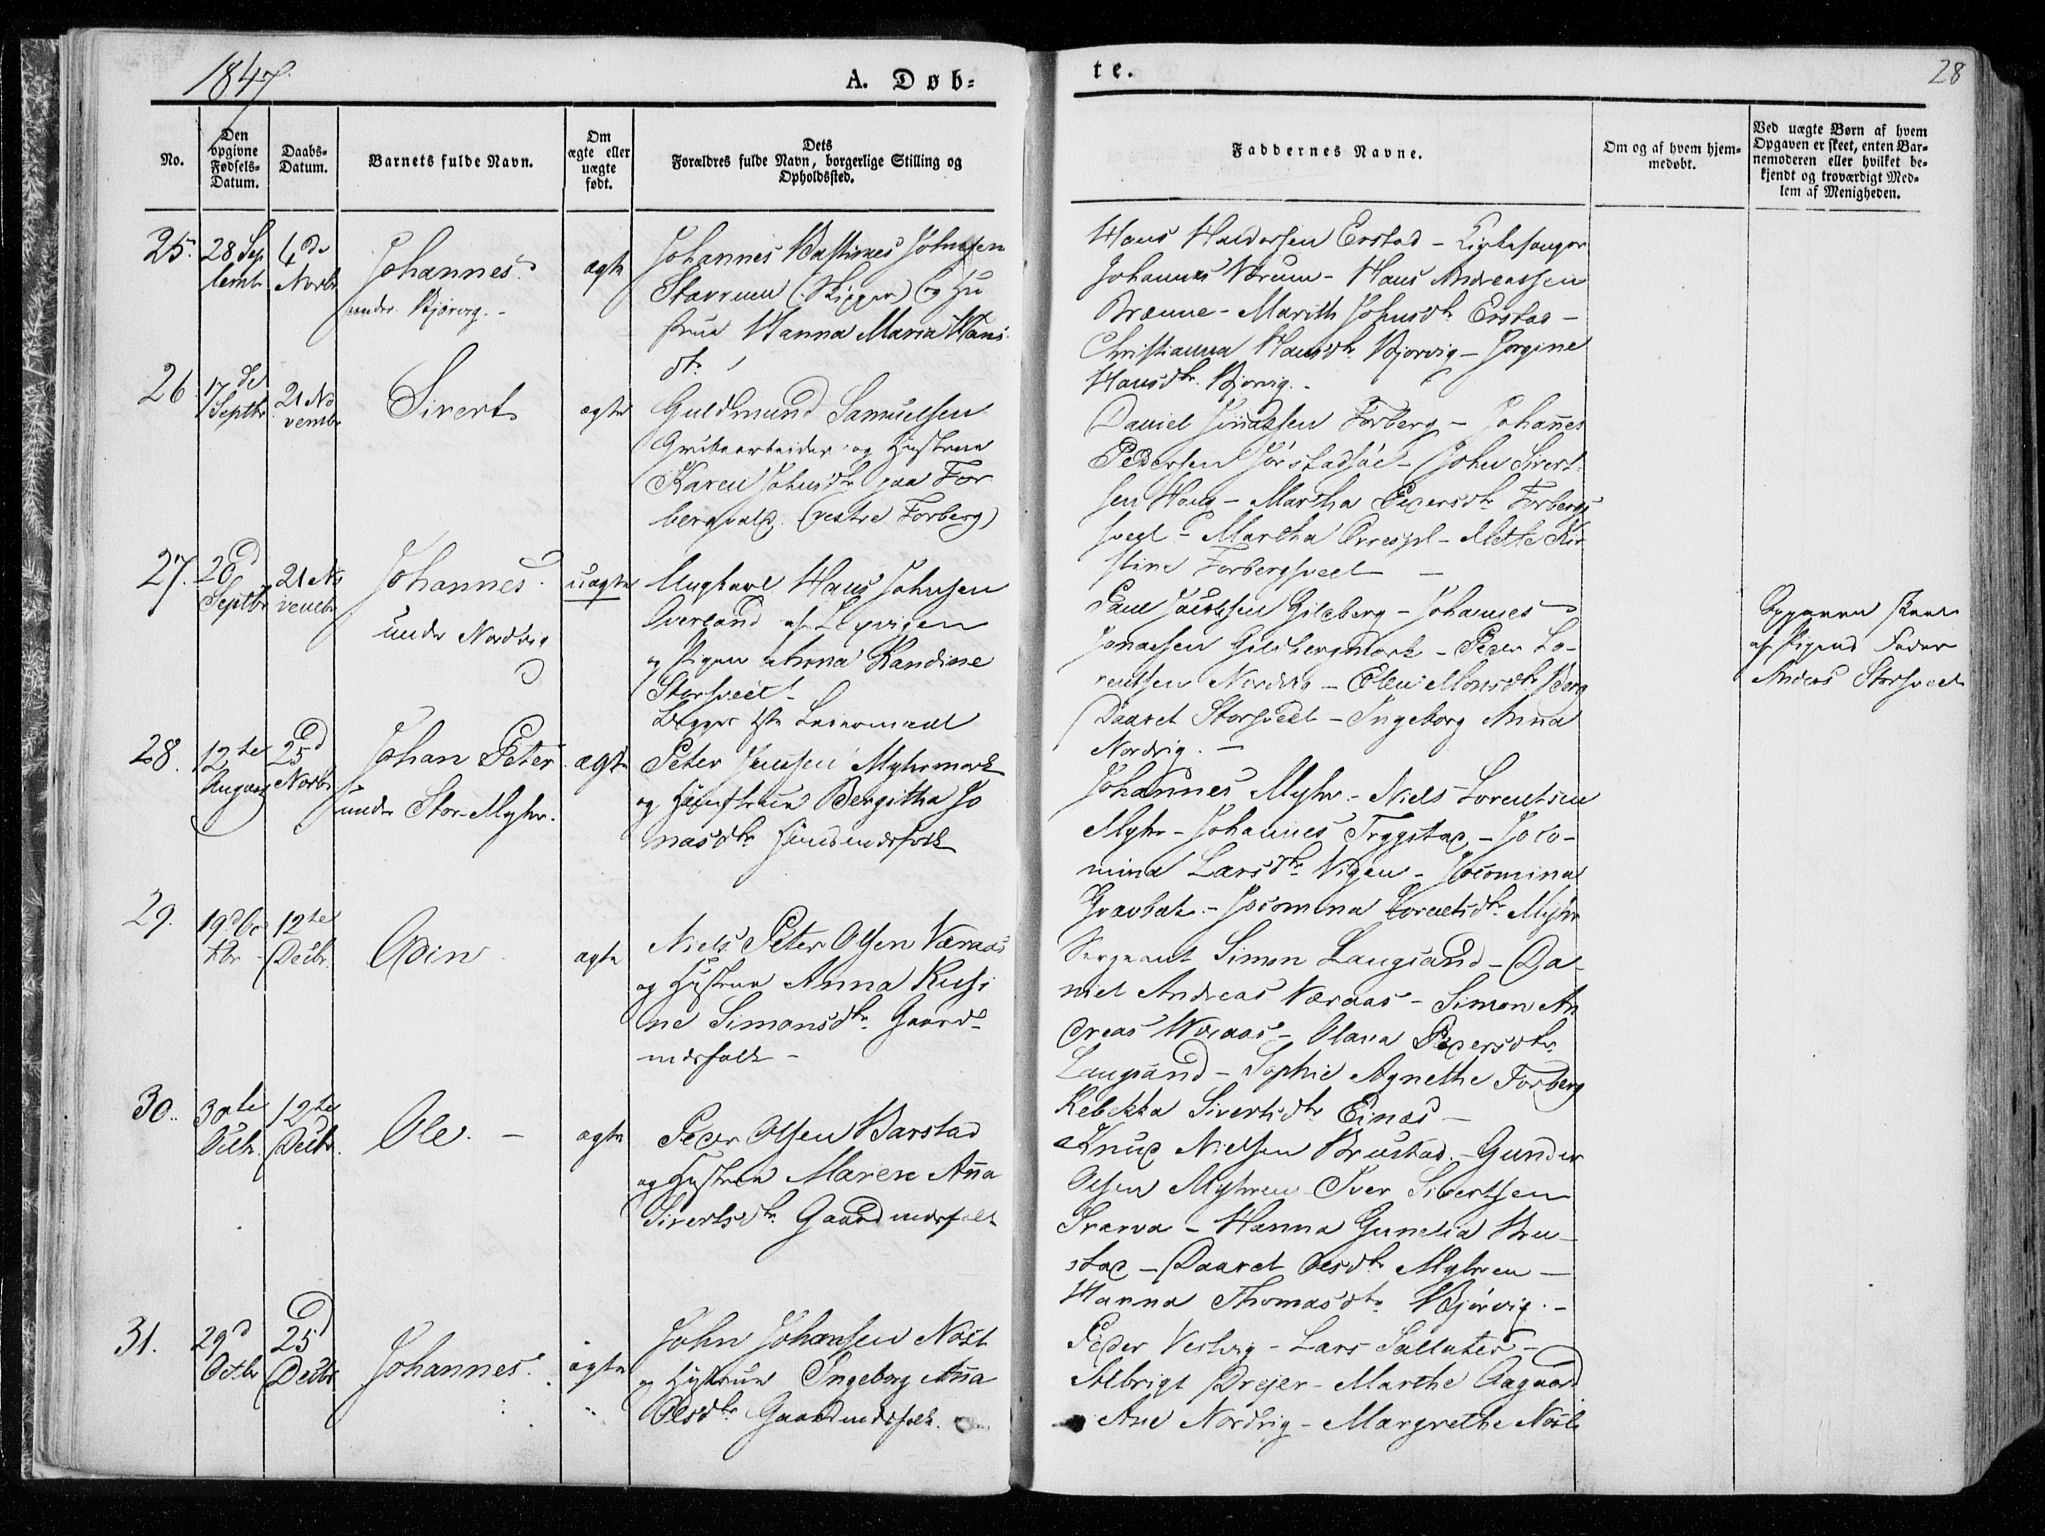 1847.
A. Døb=
te.
28
No.
Den opgivne Fødsels-Datum.
Daabs-Datum.
Barnets fulde Navn.
Om ægte eller uægte født.
Dets Forældres fulde Navn, borgerlige Stilling og Opholdssted.
Faddernes Navne.
Om og af hvem hjemmedøbt.
Ved uægte Børn af hvem Opgaven er skeet, enten Barnemoderen eller hvilket bekjendt og troværdigt Medlem af Menigheden.
25.
28 Sep
tembr
4de
Novbr
Johannes
under Bjørvig. -
ægte
Johannes Bastines Johnsen
Stavruen (Skipper) og Hu
strue Hanna Maria Hans
dtr
Hans Haldorsen Erstad - Kirkesanger
Johannes Værum - Hans Andreassen
Brænne - Marith Johnsdtr Erstad -
Christianna Hansdtr Bjørvig - Jørgine
Hansdtr. Bjørvig. -
26
17de
Septbr
21 No
vembr
Sivert
ægte
Guldmund Samuelsen
Grubearbeider og Hustrue
Karen Johnsdtr paa For
bergvald. (vestre Forberg)
Daniel Jonassen Forberg - Johannes
Pedersen Jørstadsåe - John Sivert
sen Haug - Martha Pedersdtr Forbergs
hvedt - Martha - Mette Kir
stine Forbergsveet -
27.
20d
Septbr
21 No
vembr
Johannes
under Nordvig
uægte
Ungkarl Hans Johnsen
Overland af Lexvigen
og Pigen Anna Randine
Storsveet
Begges 1ste Leiermaal
Paul Jacobsen Gileberg - Johannes
Jonassen Gilebergmark - Peder Lo-
rentsen Nordvig - Elen Monsdtr Berg
Daaret Storsveet - Ingeborg Anna
Nordvig. -
Opgaven skeet
af Pigens Fader
Anders Storsveet
28.
12te
August
25d
Novbr
Johan Peter
under Stor-Myhr.
ægte
Peter Jensen Myhrmark
og Hustrue Bergitha Jo
nasdtr Huusmdsfolk
Johannes Myhr - Niels Lorentsen
Myhr - Johannes Trygstad - Jaco-
mina Larsdtr Vigen - Jocomina
Gravbak - Jocomina Lorentsdtr. Myhr
29.
19d Oc
tbr -
12te
Decbr.
Odin
ægte
Niels Peter Olsen Væraas
og Hustrue Anna Kirsti
ne Simonsdtr. Gaard-
mdsfolk -
Sergeant Simon Langsand - Da-
niel Andreas Væraas - Simon An
dreas Wæraas - Olava Pedersdtr.
Langsand - Sophie Agnethe Forberg
Rebekka Sivertsdtr Einas -
30.
30te
Octbr.
12te
Decbr.
Ole. -
ægte
Peder Olsen Barstad
og Hustrue Maren Anna
Sivertsdtr. Gaardmdsfolk
Knud Nielsen Brustad. - Gunder
Olsen Myhren Iver Sivertsen
Sværva - Hanna Gunelia Bru-
stad - Daaret Olsdtr Myhren -
Hanna Thomasdtr Bjørvig. -
31.
29d
Octbr
25d
Decbr
Johannes.
ægte
John Johansen Nøst
og Hustrue Ingeborg Anna
Olsdtr Gaardmdsfolk.
Peder Vestvig - Lars Salluter -
Albrigt Drejer - Marthe Aagaard
Ane Nordvig - Margrethe Nøst